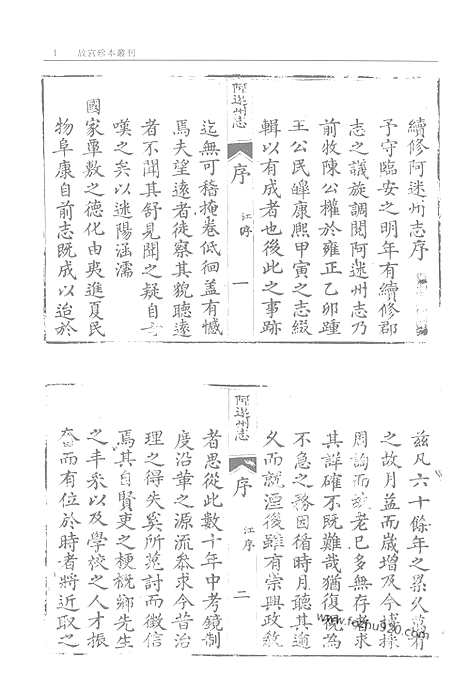 1 故宮珍本叢刊
續修阿迷州志序
予守臨安之明年有續修郡
志之議旋調閱阿迷州志乃
前牧陳公權於雍正乙卯踵
王公民皞康熙甲寅之志綴
輯以有成者也後此之事跡
阿迷州志
序
江序
一
迄無可稽掩卷低徊蓋有憾
焉夫望遠者徒察其貌聽遠
者不聞其舒見聞之疑自
嘆之矣以迷陽涵濡
國家覃敷之德化由夷進夏民
物阜康自前志既成以迨於
茲凡六十餘年之累久
之故月益而歲增及今採
周詢而故老已多無存者求
其詳確不既難哉猶復視為
不急之務因循時月聽其適
久而就湮後雖有崇興政敘
阿迷州志
序
江序
二
者思從此數十年中考鏡制
度沿革之源流叅求今昔治
理之得失奚所蒐討而徵信
焉其自賢吏之梗概鄉先生
之丰采以及學校之人才振
奮而有位於時者將近取之
www.fozhu920.com